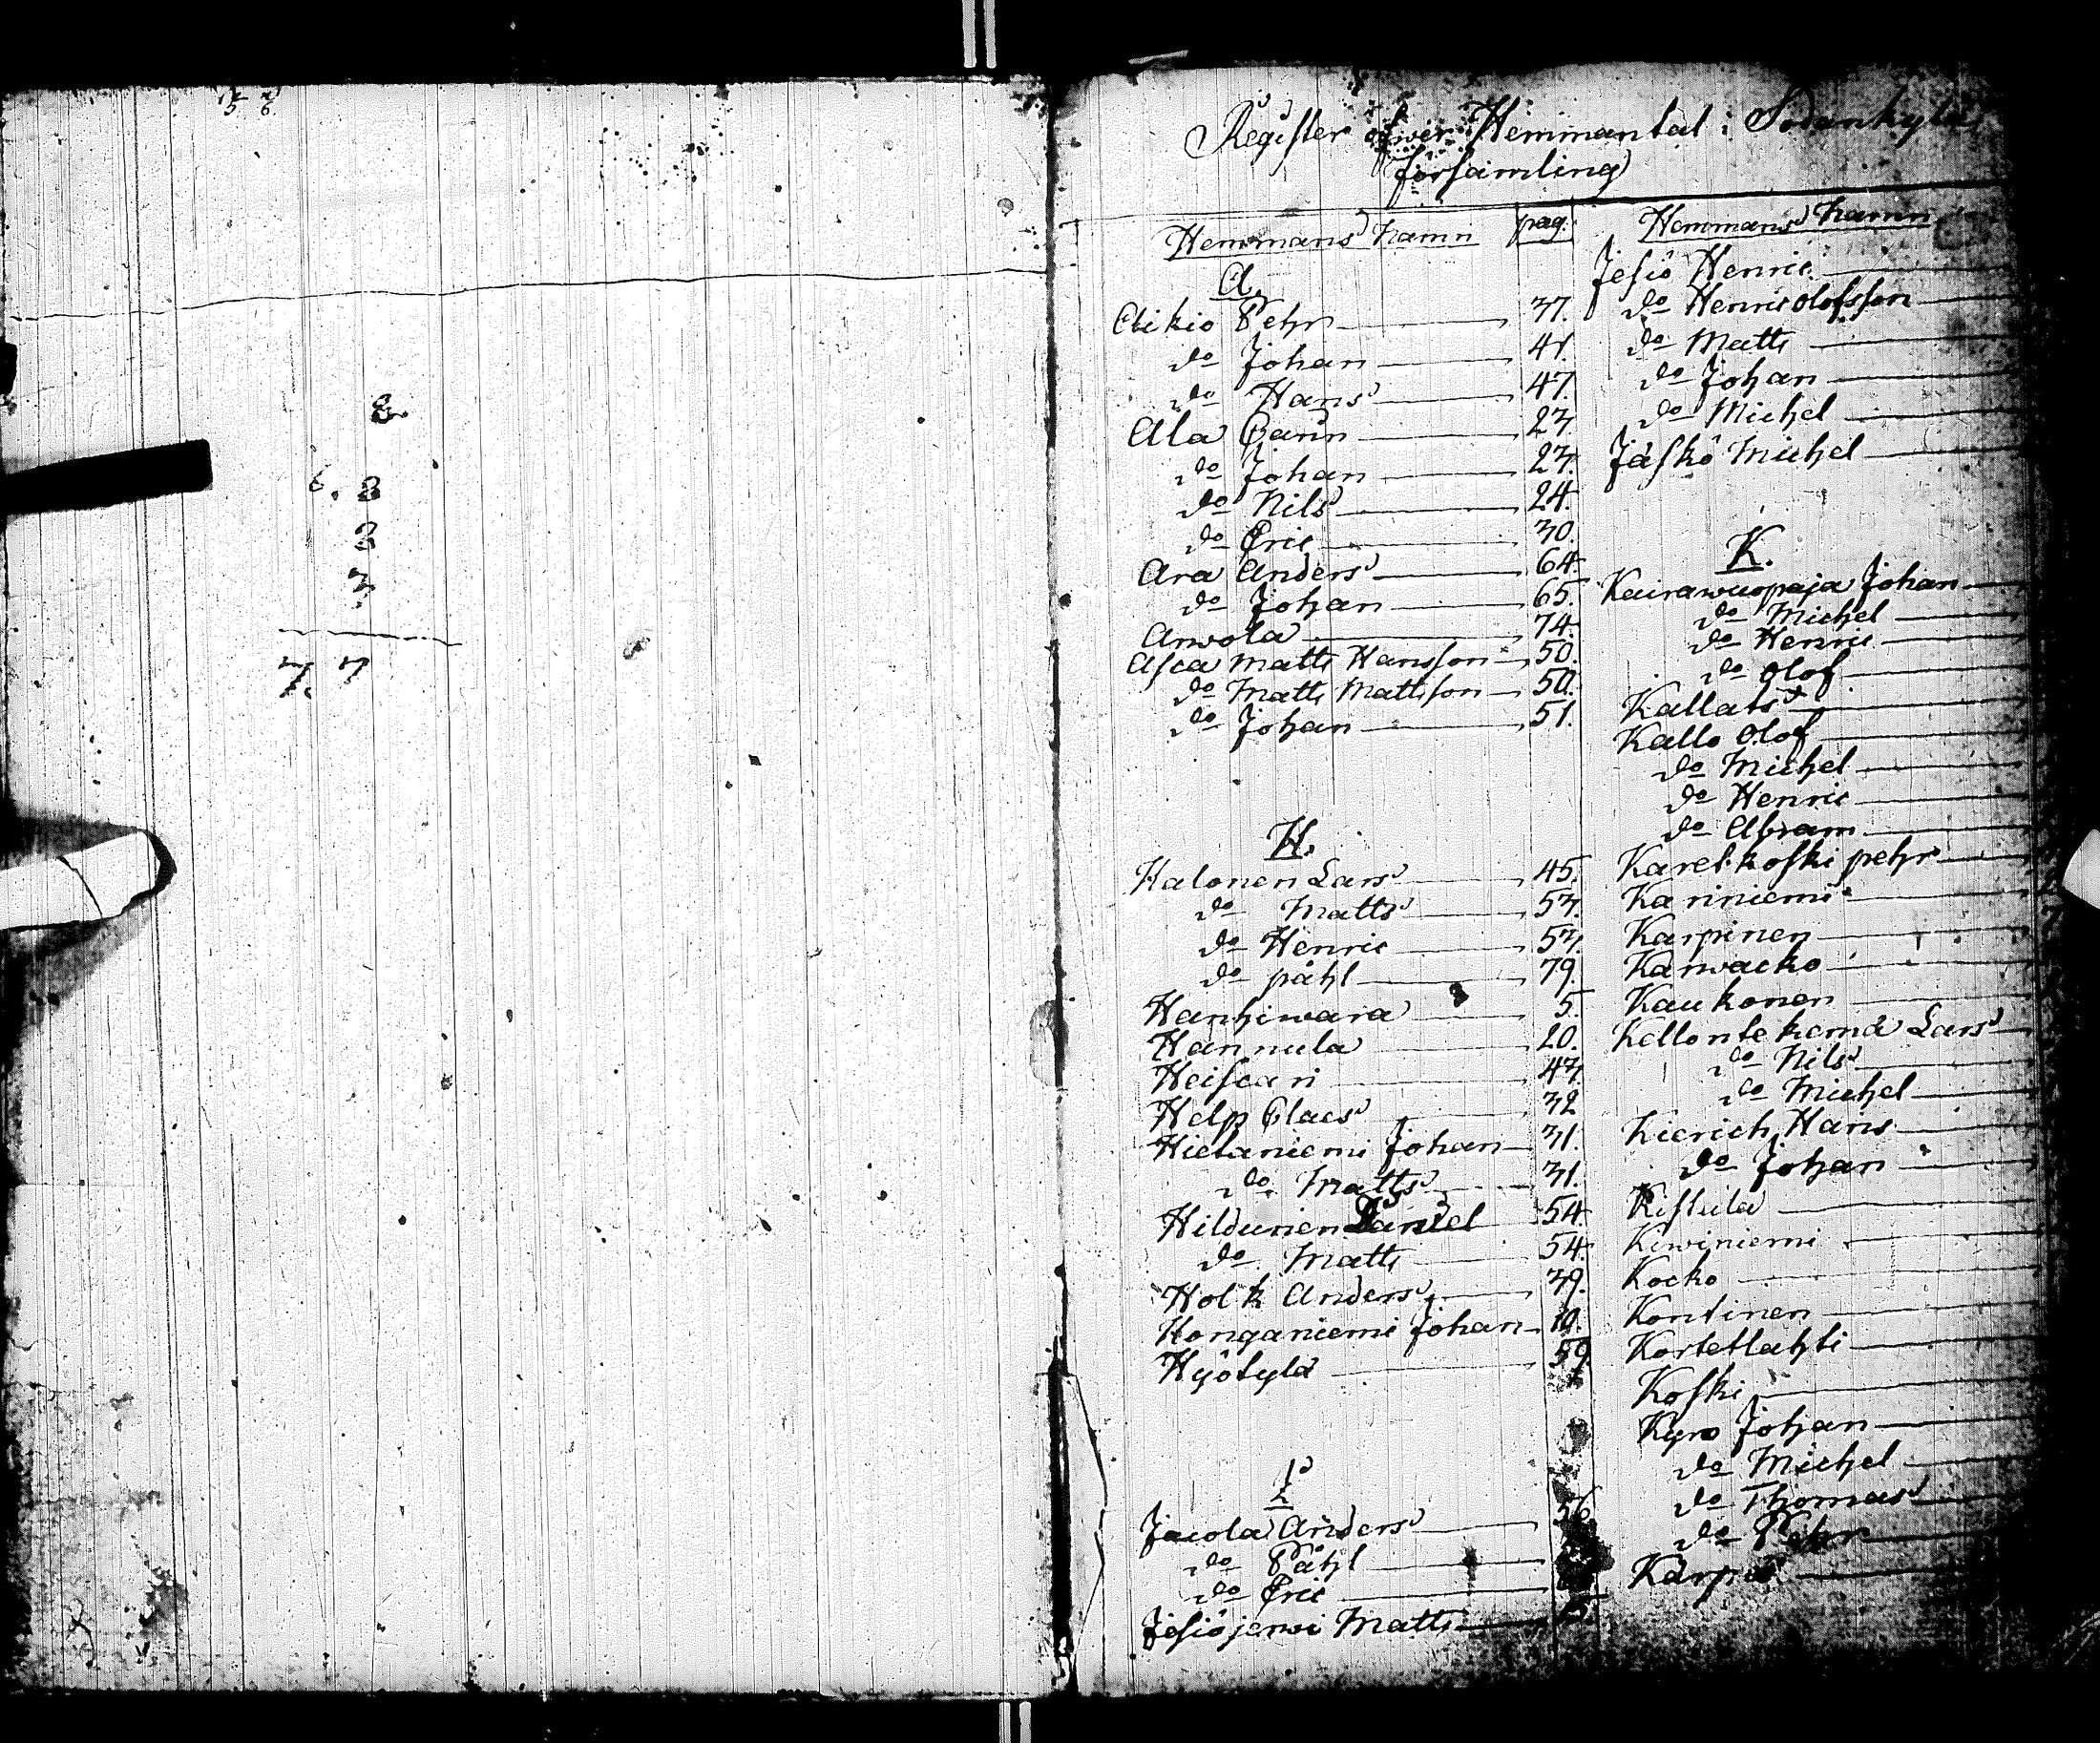 8.
6. 8
2
3
7. 7
Register öfwer Hemmantal i Sodankylä
församling
Hemmans namn pag.
A.
Aikio Pehr 37.
do Johan 41
do Hans 47.
Ala Carin 23
do Johan 23.
do Nils 24.
do Eric 30.
Ara Anders 64.
do Johan 65.
Arwola 74.
Asca Matts Hansson 50.
do Matts Mattsson 50.
do Johan 51.
H.
Halonen Lars 45.
do Matts 53.
do Henric 53.
do påhl 79.
Hanhiwara 5.
Hannula 20.
Heiscari 43.
Help Claes 32
Hietaniemi Johan 31.
do Matts 31.
Hildunen Daniel 54.
do Matts 54.
Holk Anders 39.
Honganiemi Johan 19.
Hyötylä 59.
I
Jacola Anders 56
do Påhl
do Eric
Jesiöjerwi Matts
Hemmans namn
Jesiö Henric
do Henric Olofsson
do Matts
do Johan
do Michel
Jäskö Michel
K.
Kairawuopaja Johan
do Michel
do Henric
do Olof
Kallats
Kallo Olof
do Michel
do Henric
do Abram
Karelkoski pehr
Kariniemi
Karpinen
Karwacko
Kaukonen
Kellontekemä Lars
do Nils
do Michel
Kierich Hans
do Johan
Kistula
Kiwiniemi
Kocko
Kontinen
Kortetlahti
Koski
Kyrö Johan
do Michel
do Thomas
do Pehr